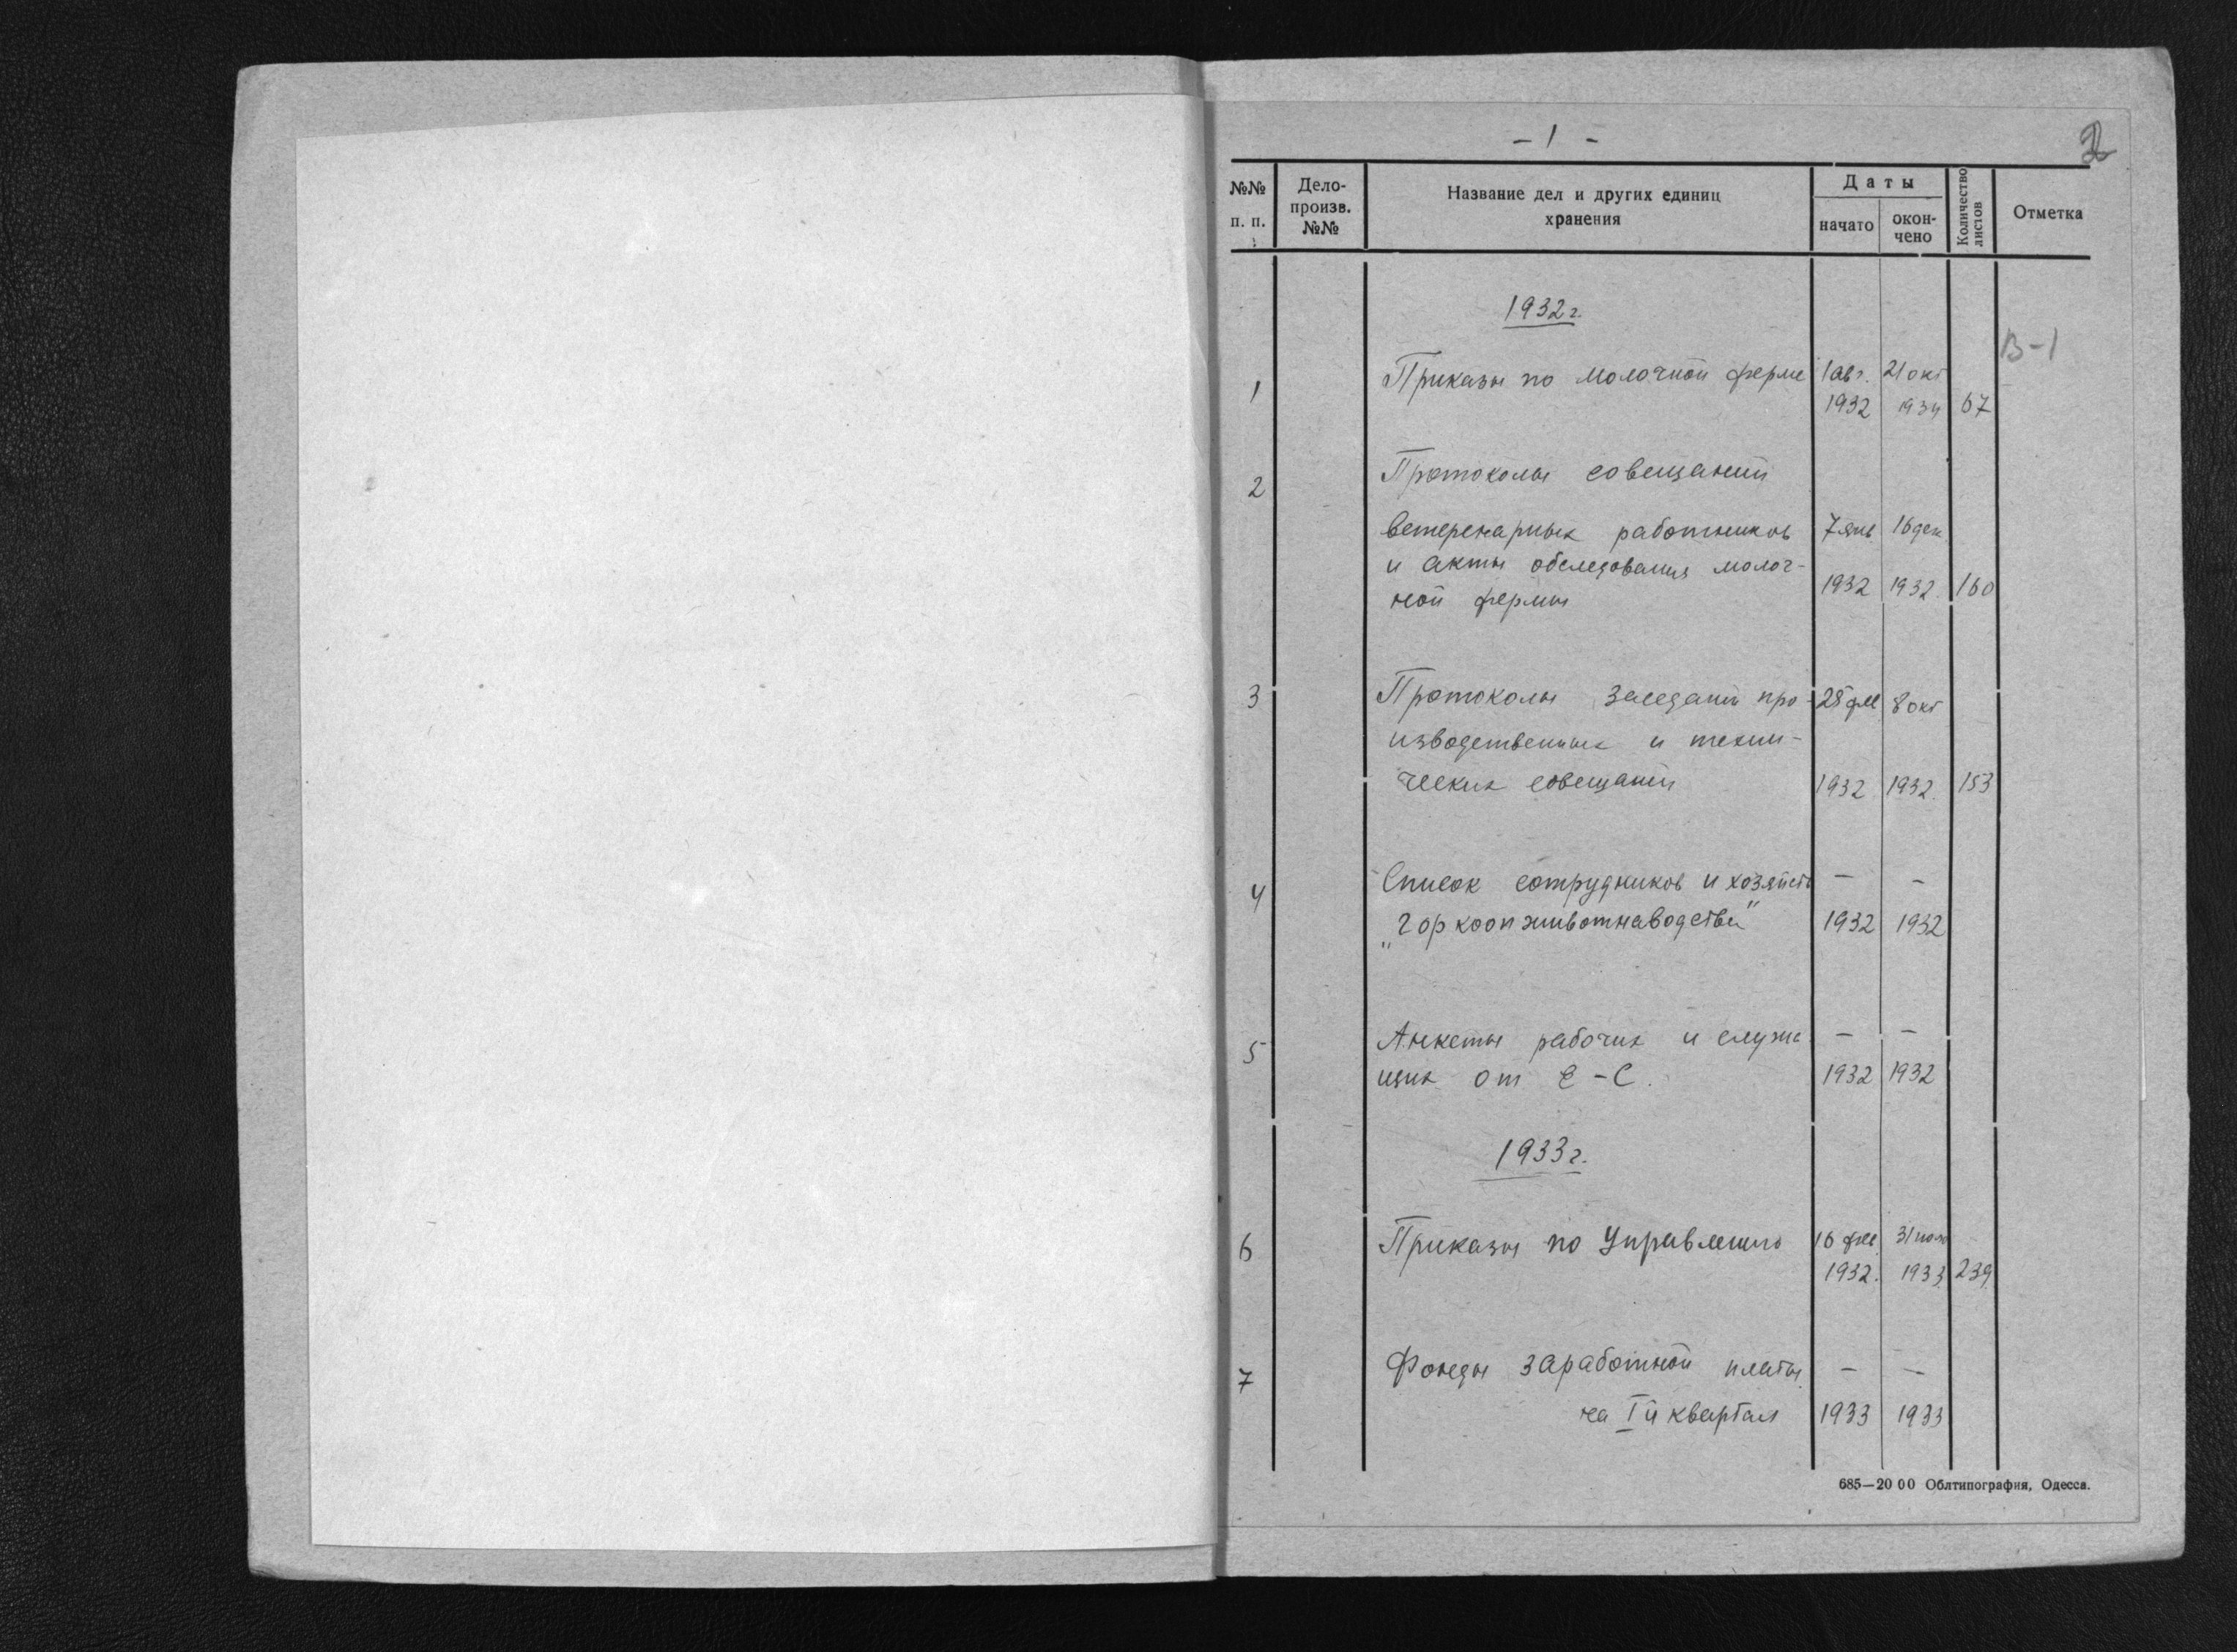 - 1 -
2
№№ п. п.
Дело-
произв.
№№
Название дел и других единиц
хранения
Даты
начато
окон-
чено
Количество
листов
Отметка
1932 г.
В-1
1 Приказы по молочной ферме 1 авг. 21 окт
1932 1934 67
2 Протоколы совещаний
ветеренарных работников 7 янв 16 дек
и акты обследования молоч-
ной фермы 1932 1932. 160
3 Протоколы заседаний про- 28 фев 8 окт
изводственных и техни-
ческих совещаний 1932 1932. 153
4 Список сотрудников и хозяйств — —
„Горкоопживотнаводства" 1932 1932
5 Анкеты рабочих и служа — —
щих от Е - С. 1932 1932
1933 г.
6 Приказы по Управлению 16 фев. 31
1932. 1933 239
7 Фонды заработной платы — —
на I й квартал 1933 1933
685—20 00 Облтипография, Одесса.